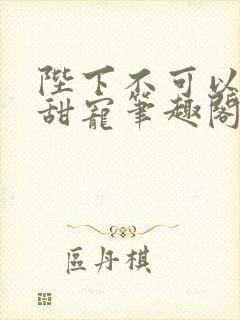 陛下不可以
甜寵筆趣閣
區丹棋